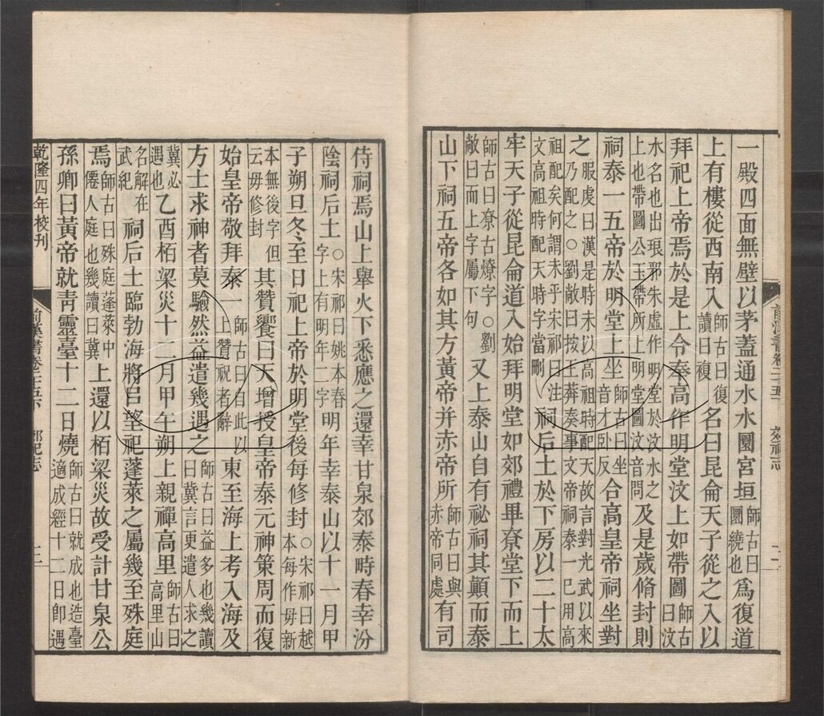 一殿四面無壁以茅蓋通水水圜宮垣師古曰圜繞也爲復道
上有樓從西南入師古曰復讀曰複名曰昆侖天子從之入以
拜祀上帝焉於是上令奉高作明堂汶上如帶圖師古曰汶
水名也出琅邪朱虛作明堂於汶水之上也帶圖公玉帶所上明堂圖汶音問及是歲脩封則
祠泰一五帝於明堂上坐師古曰坐音才卧反合高皇帝祠坐對
之服虔曰漢是時未以高祖時配天故言對光武以來乃配之○劉敞曰按王莽奏事文帝祠泰一已用高
祖配矣何謂未乎宋祁曰注文高祖時配天時字當刪祠后土於下房以二十太
牢天子從昆侖道入始拜明堂如郊禮畢尞堂下而上
師古曰尞古燎字○劉敞曰而上屬下句又上泰山自有祕祠其顛而泰
山下祠五帝各如其方黃帝并赤帝所師古曰與赤帝同處有司
前漢書卷二十五下 郊祀志 十一
侍祠焉山上舉火下悉應之還幸甘泉郊泰畤春幸汾
陰祠后土○宋祁曰姚本春字上有明年二字明年幸泰山以十一月甲
子朔旦冬至日祀上帝於明堂後每修封○宋祁曰越本每作毋新
本無後字但云毋修封其贊饗曰天增授皇帝泰元神策周而復
始皇帝敬拜泰一師古曰自此以上贊祝者辭東至海上考入海及
方士求神者莫驗然益遣幾遇之師古曰益多也幾讀曰冀言更遣人求之
冀必遇也乙酉柏梁災十二月甲午朔上親禪高里師古曰高里山
名解在武紀祠后土臨勃海將㠯望祀蓬萊之屬幾至殊庭
焉師古曰殊庭蓬萊中僊人庭也幾讀曰冀上還以柏梁災故受計甘泉公
孫卿曰黃帝就青靈臺十二日燒師古曰就成也造臺適成經十二日卽遇
乾隆四年校刊 前漢書卷二十五下 郊祀志 十二